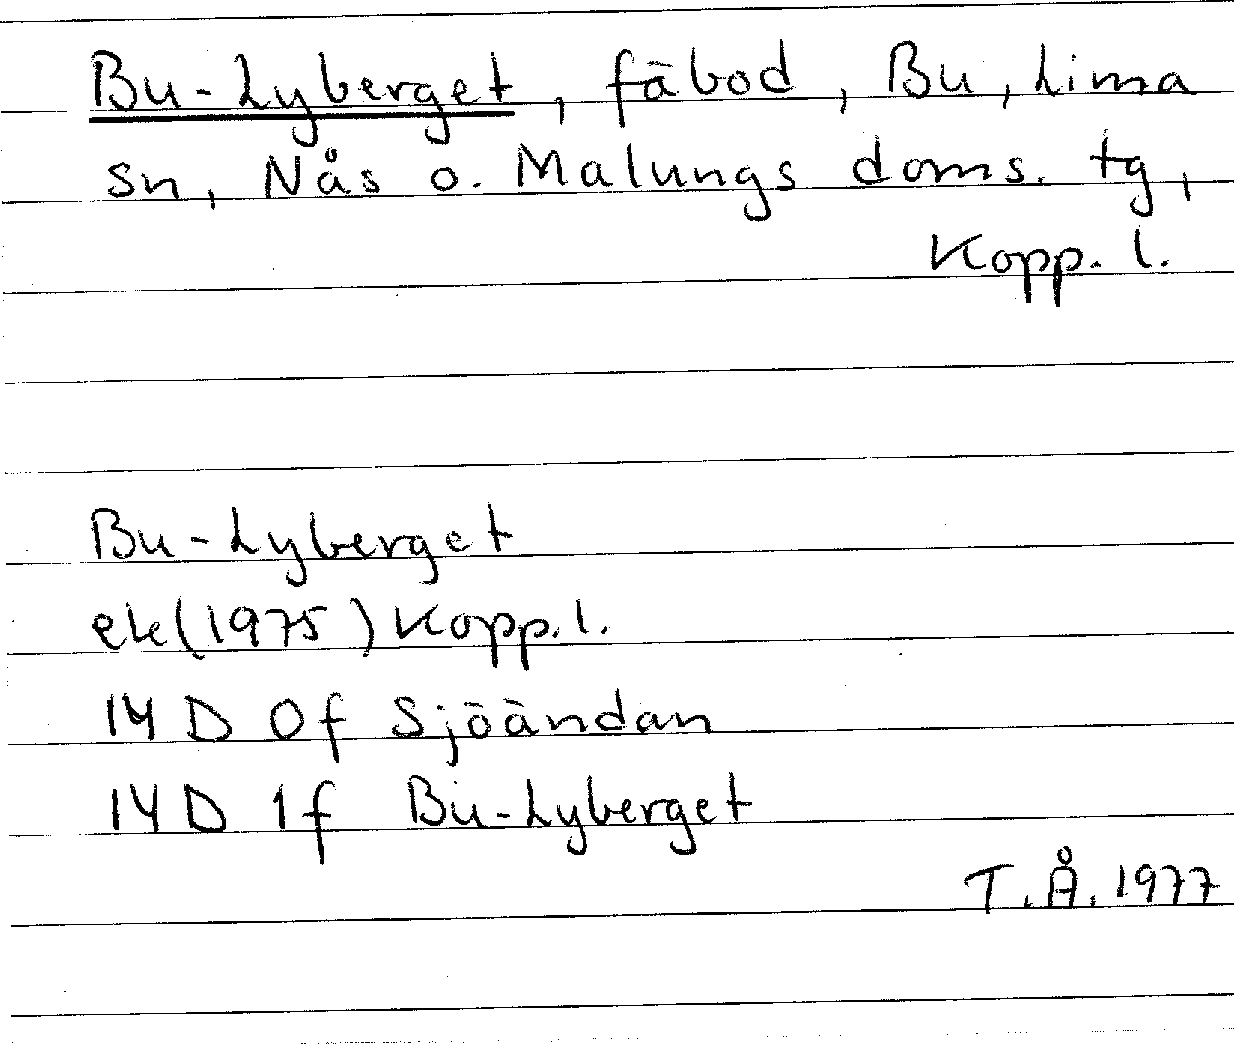 Bu-Lyberget, fäbod, Bu, Lima
sn, Nås o. Malungs doms. tg,
Kopp. l.
Bu-Lyberget
ek(1975) Kopp. l.
14 D 0f Sjöändan
14 D 1f Bu-Lyberget
T.Å. 1977